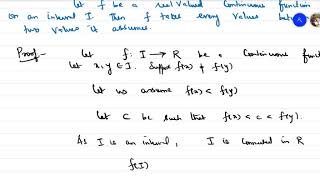 let f be a real valued continuous function
on an interval I. Then f takes every values betwe
two values it assumes.
Proof:- Let f: I → R be a continuous funct
Let x, y ∈ I. Suppose f(x) ≠ f(y)
Let us assume f(x) < f(y)
Let c be such that f(x) < c < f(y).
As I is an interval, I is connected in R
f(I)